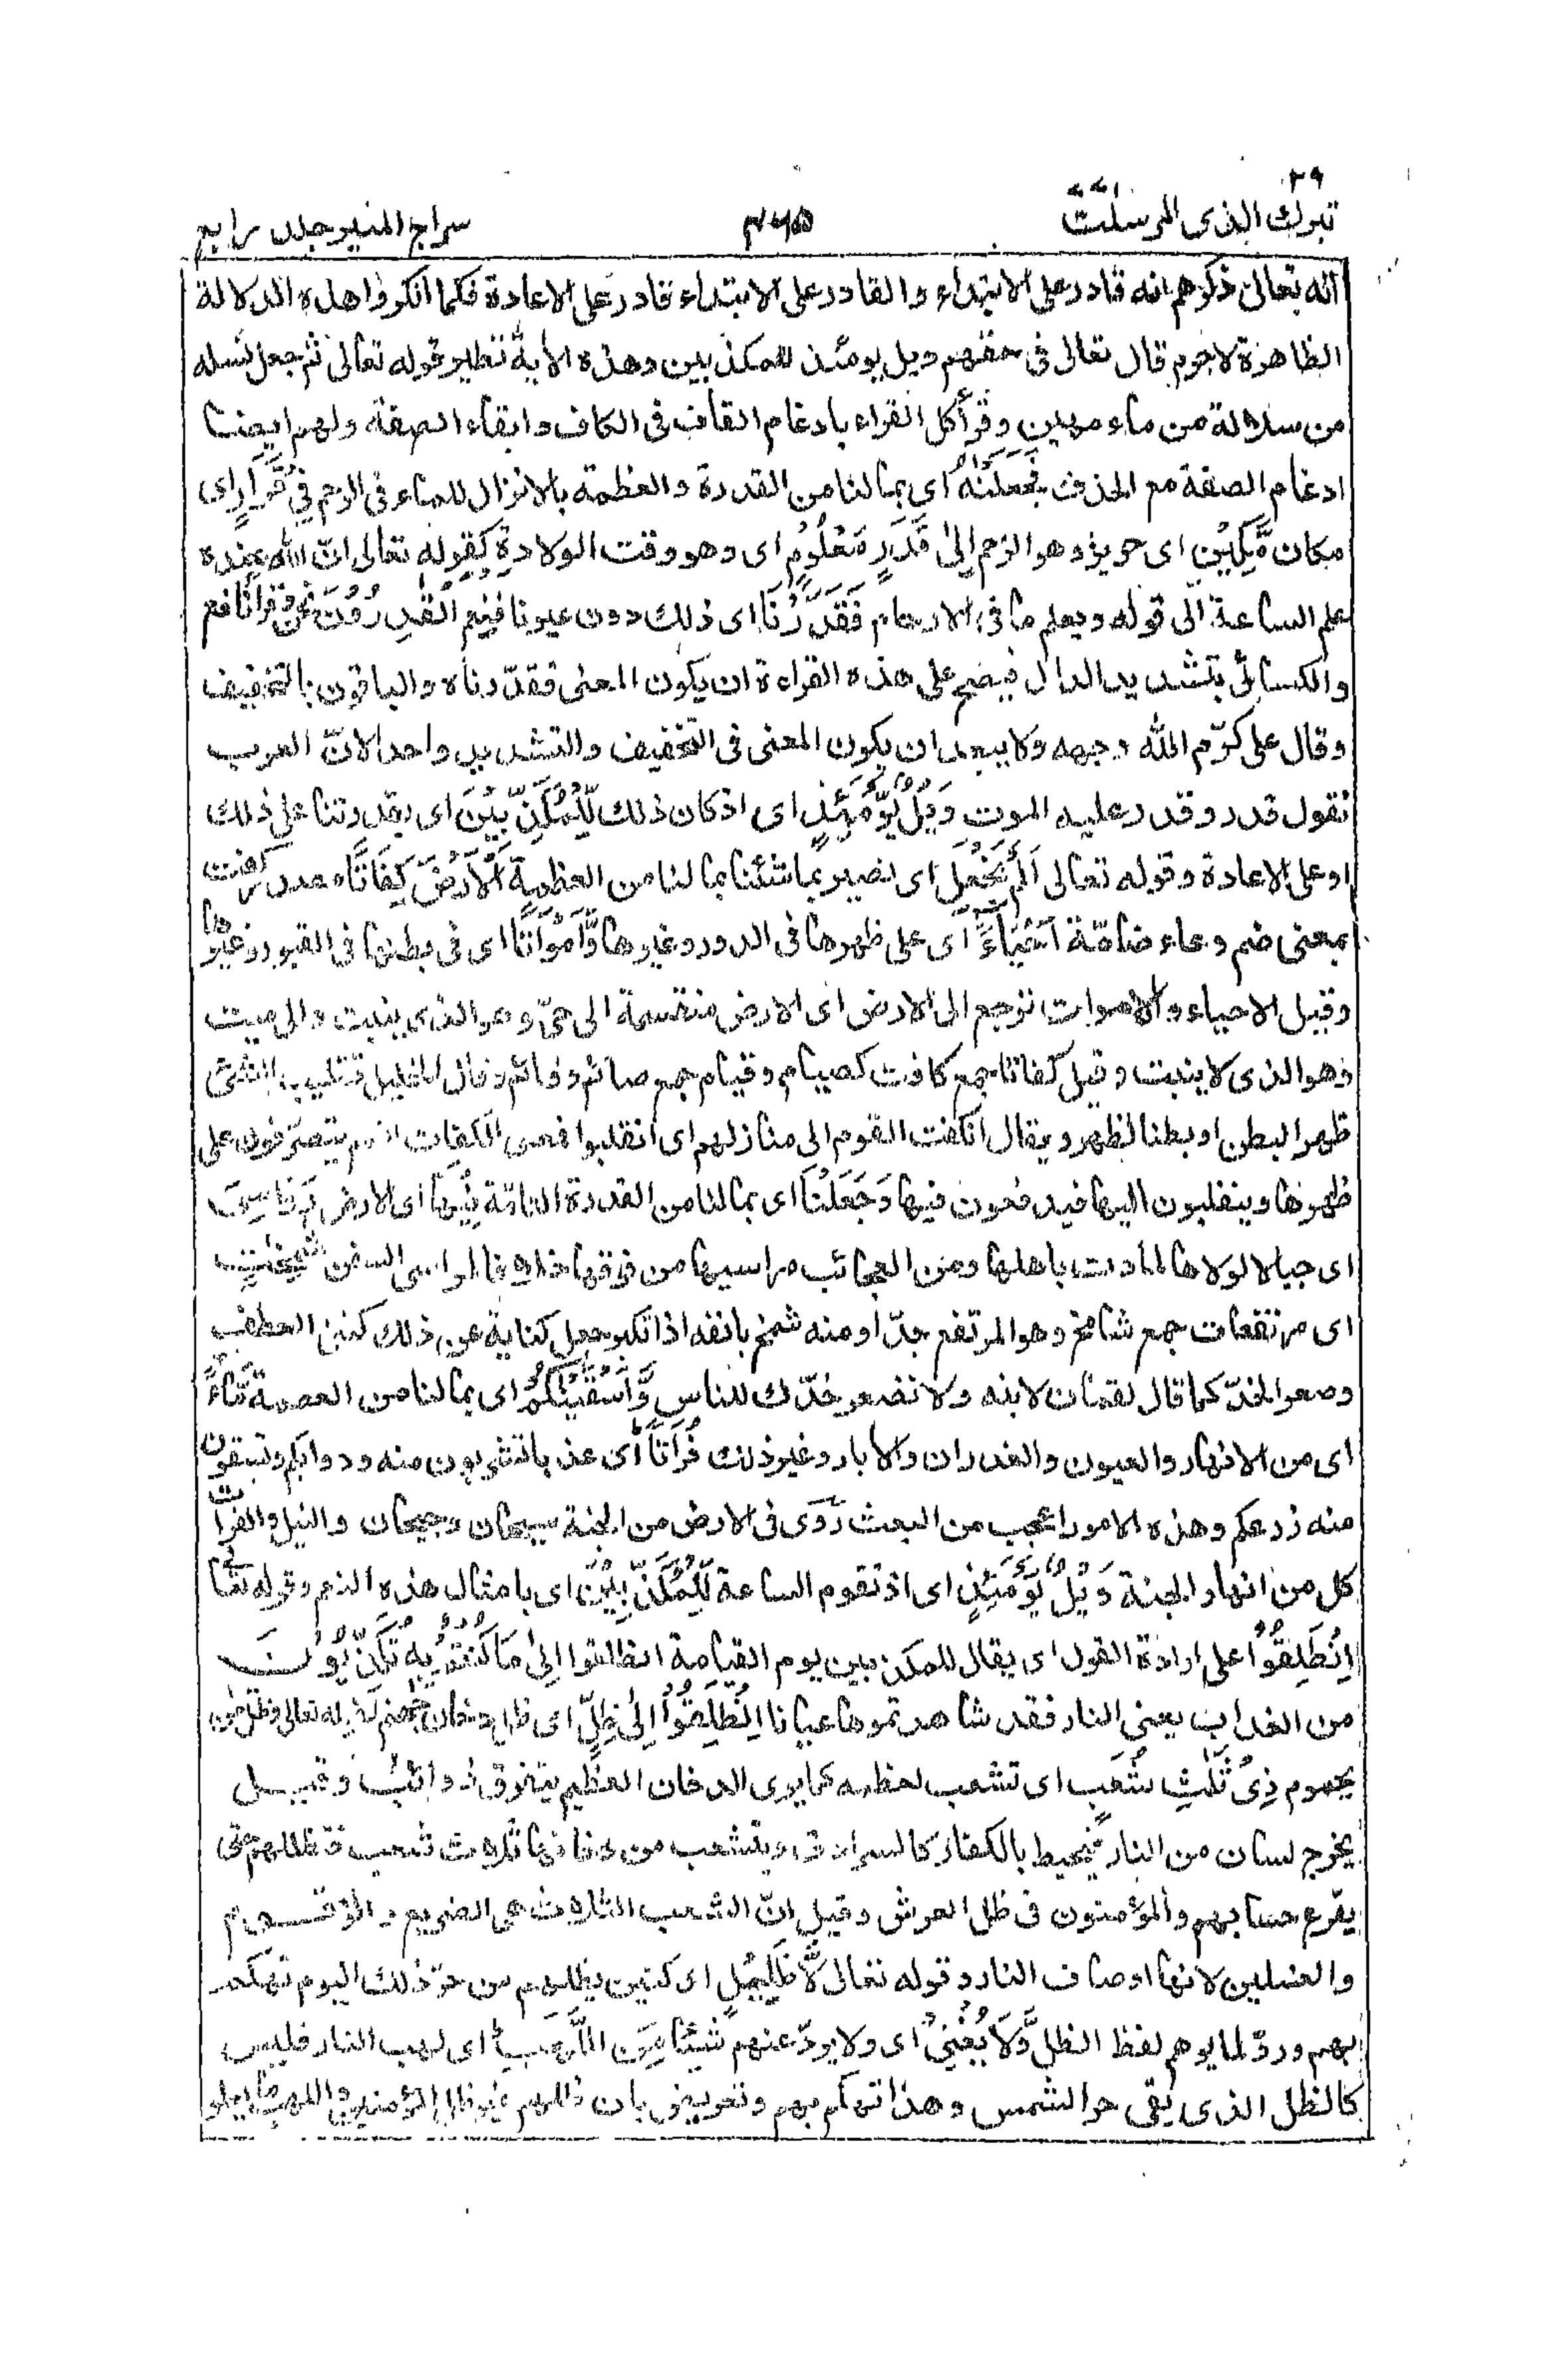 ٢٩
تبرك الذى المرسلٰت
٤٦٥
سراج المنير جلد رابع
انه تعالى ذكرهم انه قادر على الابتداء والقادر على الابتداء قادر على الاعادة فكما انكروا هذه الدلالة
الظاهرة لاجرم قال تعالى فى حقهم ويل يومئذ للمكذبين وهذه الأية نظير قوله تعالى ثم جعل نسله
من سلالة من ماء مهين وقرأ كل القراء بادغام القاف فى الكاف وابقاء الصفة ولهم ايضا
ادغام الصفة مع الحذف فَجَعَلْنٰهُ اى بما لنا من القدرة والعظمة بالانزال للماء فى الرحم فِيْ قَرَارٍ اى
مكان مَّكِيْنٍ اى حريز وهو الرحم اِلٰى قَدَرٍ مَّعْلُوْمٍ اى وهو وقت الولادة كقوله تعالى انّ الله عنده
علم الساعة الى قوله ويعلم ما فى الارحام فَقَدَرْنَا اى ذلك دون غيرنا فَنِعْمَ الْقٰدِرُوْنَ نحن وقرأ نافع
والكسائى بتشديد الدال فيصح على هذه القراءة ان يكون المعنى فقدّرناه والباقون بالتخفيف
وقال على كرّم الله وجهه ولا يبعد ان يكون المعنى فى التخفيف والتشديد واحدا لانّ العرب
تقول قدر وقدر عليه الموت وَيْلٌ يَّوْمَئِذٍ اى اذ كان ذلك لِّلْمُكَذِّبِيْنَ اى بقدرتنا على ذلك
او على الاعادة وقوله تعالى اَلَمْ نَجْعَلِ اى نصير بما شئنا بما لنا من العظمة الْاَرْضَ كِفَاتًا مصدر كفت
بمعنى ضم وعاء ضامّة اَحْيَاءً اى على ظهرها فى الدور وغيرها وَّاَمْوَاتًا اى فى بطنها فى القبور وغيرها
وقيل الاحياء والاموات ترجع الى الارض اى الارض منقسمة الى حىّ وهو الذى ينبت والى ميت
وهو الذى لا ينبت وقيل كفاتا جمع كافت كصيام وقيام جمع صائم وقائم وقال الخليل تقليب الشئ
ظهر البطن او بطنا لظهر ويقال انكفت القوم الى منازلهم اى انقلبوا فمعنى الكفات انهم يتصرّفون على
ظهرها وينقلبون اليها فيدفنون فيها وَجَعَلْنَا اى بما لنا من القدرة التامّة فِيْهَا اى الارض رَوَاسِيَ
اى جبالا لولاها لمادت باهلها ومن العجائب مراسيها من فوقها خلاف مراسى السفن شٰمِخٰتٍ
اى مرتفعات جمع شامخ وهو المرتفع جدّا ومنه شمخ بانفه اذا تكبر جعل كناية عن ذلك كثنى العطف
وصعر الخدّ كما قال لقمان لابنه ولا تصعر خدّك للناس وَّاَسْقَيْنٰكُمْ اى بما لنا من العصمة مَّاءً
اى من الانهار والعيون والغدران والأبار وغير ذلك فُرَاتًا اى عذبا تشربون منه ودوابكم وتسقون
منه زرعكم وهذه الامور اعجب من البعث رَوَى فى الارض من الجنة سيحان وجيحان والنيل والفرات
كل من انهار الجنة وَيْلٌ يَّوْمَئِذٍ اى اذ تقوم الساعة لِّلْمُكَذِّبِيْنَ اى بامثال هذه النعم وقوله تعالى
اِنْطَلِقُوْا على ارادة القول اى يقال للمكذبين يوم القيامة انطلقوا اِلٰى مَا كُنْتُمْ بِهٖ تُكَذِّبُوْنَ
من العذاب يعنى النار فقد شاهدتموها عيانا اِنْطَلِقُوْا اِلٰى ظِلٍّ اى ظل دخان جهنم كقوله تعالى وظل من
يحموم ذِيْ ثَلٰثِ شُعَبٍ اى تشعب لعظمه كما يرى الدخان العظيم يتفرق ذوائب وقيل
يخرج لسان من النار فيحيط بالكفار كالسرادق ويتشعب من دخانها ثلاث شعب فتظللهم حتى
يفرغ حسابهم والمؤمنون فى ظل العرش وقيل انّ الشعب الثلاث هى الضريع والزقوم
والغسلين لانها اوصاف النار وقوله تعالى لَّا ظَلِيْلٍ اى كنين يظلهم من حرّ ذلك اليوم تهكم
بهم وردّ لما يوهم لفظ الظل وَّلَا يُغْنِيْ اى ولا يردّ عنهم شيئا مِنَ اللَّهَبِ اى لهب النار فليس
كالظل الذى يقى حر الشمس وهذا تهكم بهم وتعريض بان ظلهم غير ظل المؤمنين واللهب ما يعلو